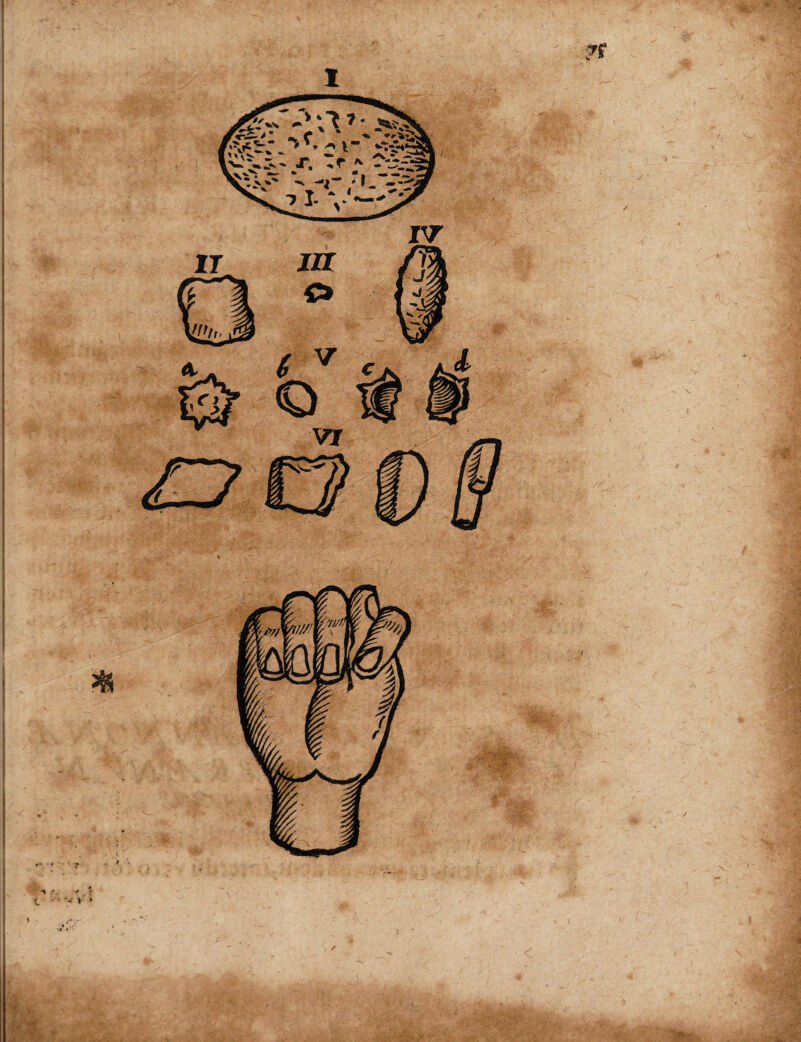 75
I
IV
II III
a b V c d
VI
*